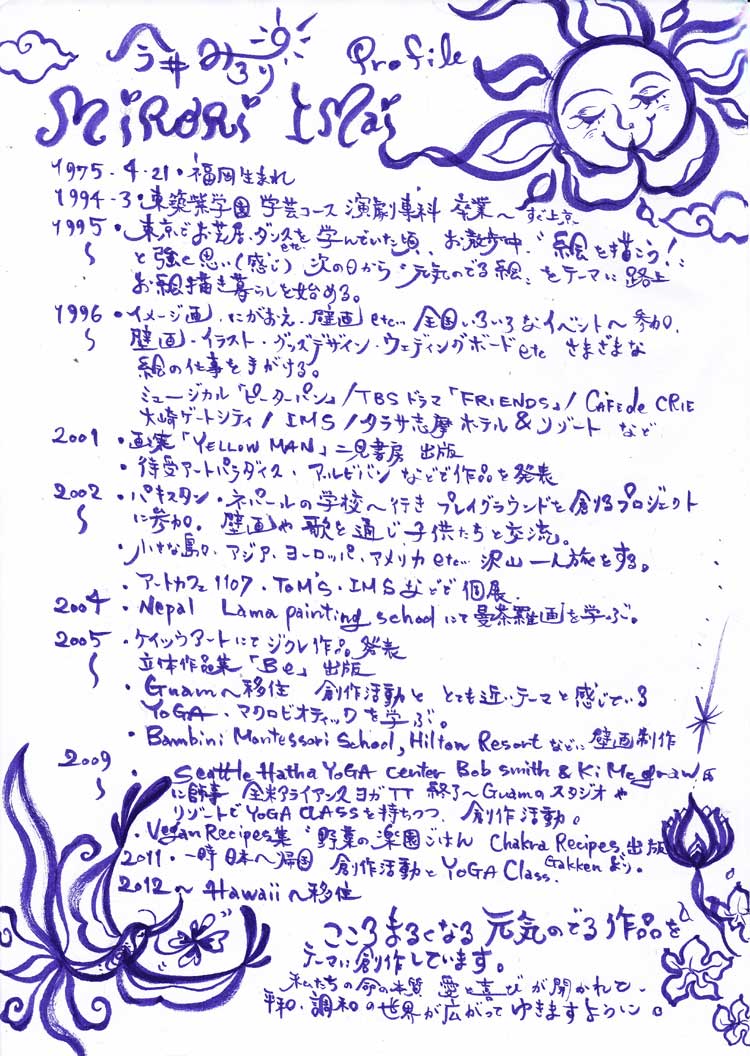 今井みろり Profile
Mirori Imai
1975・4・21・福岡生まれ
1994・3・東筑紫学園 学芸コース 演劇専科 卒業〜 すぐ上京
1995・東京でお芝居・ダンスetc.を学んでいた頃、お散歩中、“絵を描こう!”
〜 と強く思い(感じ) 次の日から“元気のでる絵”をテーマに路上
お絵描き暮らしを始める。
1996・イメージ画・にがおえ・壁画 etc… 全国いろいろなイベントへ参加。
〜 壁画・イラスト・グッズデザイン・ウェディングボード etc さまざまな
絵の仕事を手がける。
ミュージカル「ピーターパン」/TBSドラマ「FRIENDS」/CAFE de CRIE
大崎ゲートシティ/IMS/タラサ志摩ホテル&リゾート など
2001・画集「YELLOW MAN」二見書房 出版
・待受アートパラダイス・アルビバン などで作品を発表
2002・パキスタン・ネパールの学校へ行き プレイグラウンドを創るプロジェクト
〜 に参加。壁画や歌を通じ子供たちと交流。
・小さな島。アジア、ヨーロッパ、アメリカ etc… 沢山一人旅をする。
・アートカフェ1107・TOM's・IMSなどで 個展.
2004・Nepal Lama painting school にて曼荼羅画を学ぶ。
2005・ケイッウアートにてジクレ作品 発表
〜 立体作品集「Be」出版
・Guamへ移住 創作活動と とても近いテーマと感じている
YOGA・マクロビオティックを学ぶ。
・Bambini Montessori School, Hilton Resort などに 壁画制作
2009・Seattle Hatha YOGA Center Bob smith & Ki Mcgraw氏
〜 に師事 全米アライアンスヨガTT 終了〜Guamのスタジオや
リゾートでYOGA CLASSを持ちつつ、創作活動。
・Vegan Recipes集“野菜の楽園ごはん Chakra Recipes”出版
Gakkenより。
2011・一時日本へ帰国 創作活動とYOGA Class.
2012〜Hawaiiへ移住
こころまるくなる 元気のでる作品を
テーマに創作しています。
私たちの命の本質 愛と喜びが開かれて、
平和・調和の世界が広がって ゆきますように。